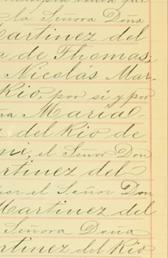 la Señora Doña
Martinez del
a de Thomas,
Nicolás Mar-
Rio, por si y por
na Maria
del Rio de
el Señor Don
artinez del
el Señor Don
Martinez del
Señora Doña
rtinez del Rio